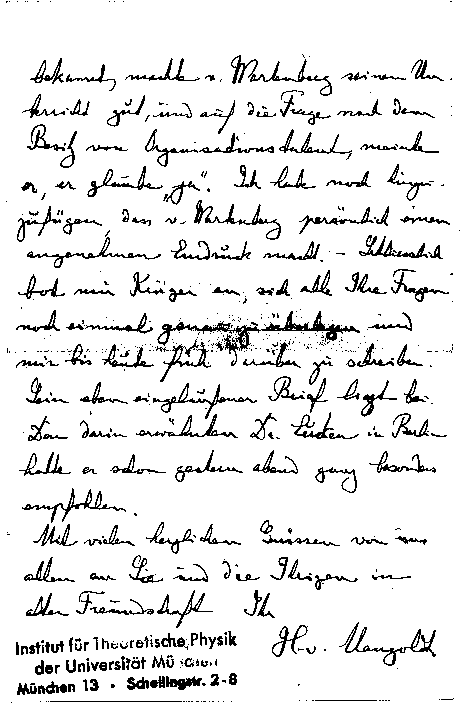 bekannt, mache v. Wartenberg seinen Un-
terricht gut, und auf die Frage nach dem
Besitz von Organisationstalent, meinte
er, er glaube „ja“. Ich habe noch hinzu-
zufügen, dass v. Wartenberg persönlich einen
angenehmen Eindruck macht. – Schliesslich
bot mir Krüger an, sich alle Ihre Fragen
noch einmal genau zu überlegen und
mir bis heute früh darüber zu schreiben.
Sein eben eingelaufener Brief liegt bei.
Den darin erwähnten Dr. in Berlin
hatte er schon gestern abend ganz besonders
empfohlen.
Mit vielen herzlichen Grüssen von uns
allen an Sie und die Ihrigen in
alter Freundschaft Ihr
H. v. Mangoldt
Institut für Theoretische Physik
der Universität München
München 13 • Schellingstr. 2-8